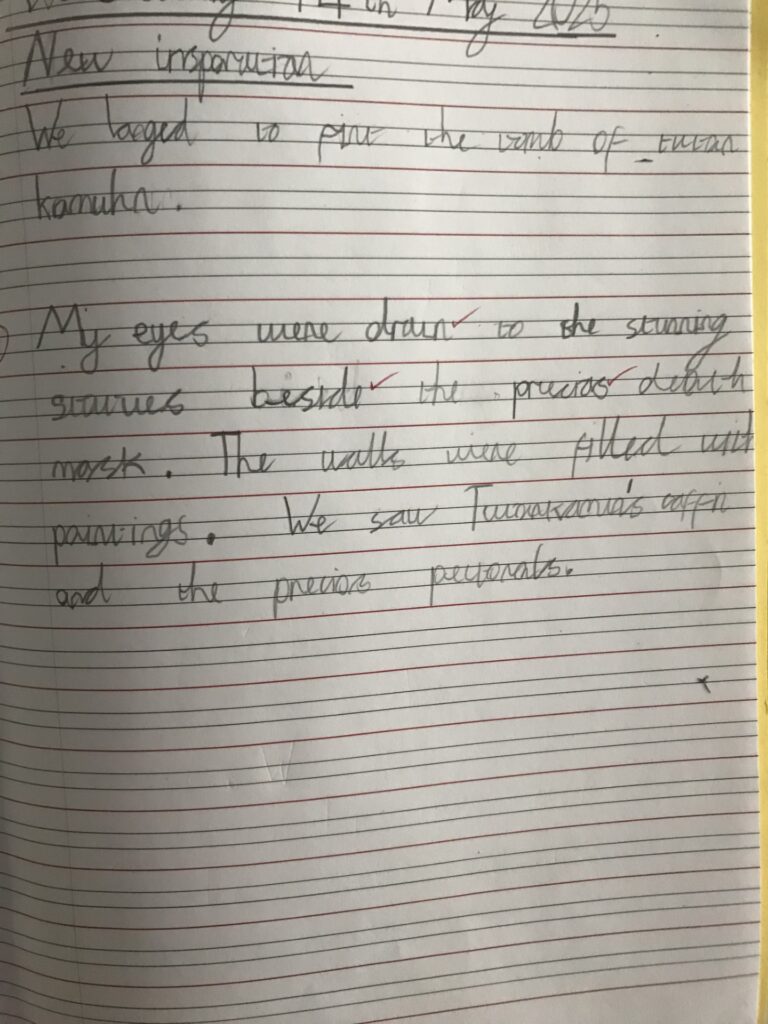 14th May 2025
New insporation
We to the tomb of tutan
kamuhn.
My eyes were drain to the stunning
statues beside the precios death
mask. The walls were filled with
paintings. We saw coffin
and the precios pectorals.